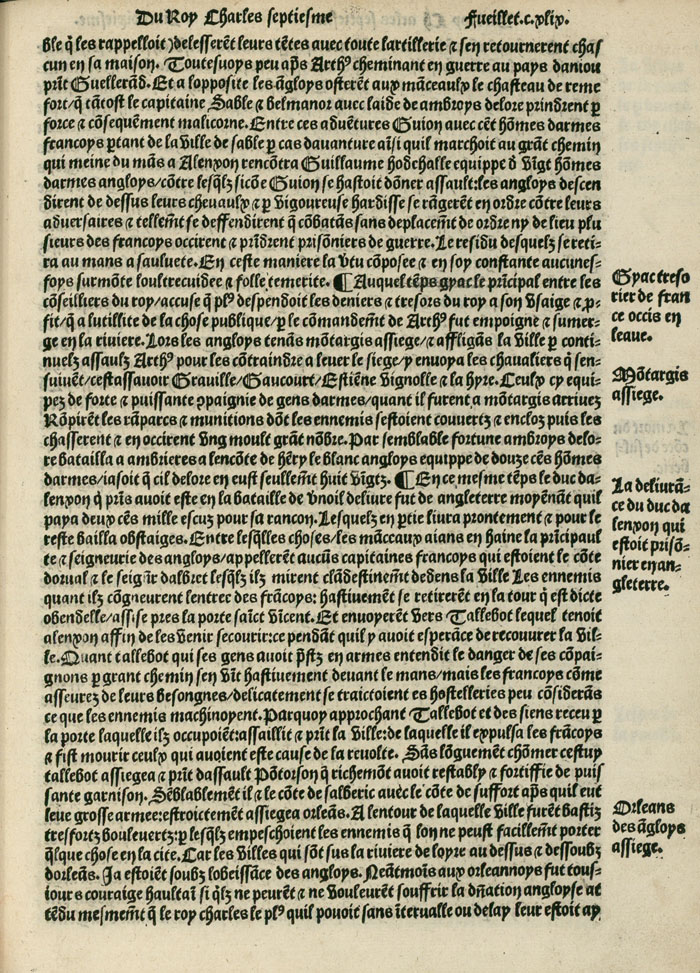 Du Roy Charles septiesme Fueillet.c.xlix.
ble q̃ les rappelloit) delesserẽt leurs tẽtes auec toute lartillerie ⁊ sen retournerent chas
cun en sa maison. Toutesuoys peu ap̃s Arth⁹ cheminant en guerre au pays daniou
prĩt Guellerãd. Et a lopposite les ãgloys osterẽt aux mãceaulx le chasteau de reme
fort/q̃ tãtost le capitaine Sable ⁊ belmanor auec laide de ambroys delore prindrent ꝑ
force ⁊ cõsequẽment malicorne. Entre ces aduẽtures Guion auec cẽt hõmes darmes
francoys ꝑtant de la ville de sable ꝑ cas dauanture aĩsi quil marchoit au grãt chemin
qui meine du mãs a Alenxon rencõtra Guillaume hodchalle equippe d̃ vĩgt hõmes
darmes angloys/cõtre lesq̃lz sicõe Guion se hastoit dõner assault:les angloys descen
dirent de dessus leurs cheuaulx ⁊ ꝑ vigoureuse hardisse se rãgerẽt en ordre cõtre leurs
aduersaires ⁊ tellem̃t se deffendirent q̃ cõbatãs sans deplacem̃t de ordre ny de lieu plu
sieurs des francoys occirent ⁊ prĩdrent prisõniers de guerre. Le residu desquelz se reti⸗
ra au mans a sauluete. En ceste maniere la ṽtu cõposee ⁊ en soy constante aucunes⸗
foys surmõte loultrecuidee ⁊ folle temerite. ¶ Auquel tẽps gyac le prĩcipal entre les
cõseilliers du roy/accuse q̃ pl⁹ despendoit les deniers ⁊ tresors du roy a son vsaige ⁊ ꝓ⸗
fit/q̃ a lutillite de la chose publique/ꝑ le cõmandem̃t de Arth⁹ fut empoigne ⁊ sumer⸗
ge en la riuiere. Lors les angloys tenãs mõtargis assiege/⁊ affligãs la ville ꝑ conti⸗
nuelz assaulz Arth⁹ pour les cõtraindre a leuer le siege/y enuoya les chaualiers q̃ sen⸗
suiuẽt/cestassauoir Grauille/Gaucourt/Estiẽne vignolle ⁊ la hyre. Ceulx cy equi⸗
pez de forte ⁊ puissante ꝯpaignie de gens darmes/quant il furent a mõtargis arriuez
Rõpirẽt les rãparcs ⁊ munitions dõt les ennemis sestoient couuertz ⁊ encloz puis les
chasserent ⁊ en occirent vng moult grãt nõbre. Par semblable fortune ambroys delo⸗
re batailla a ambrieres a lencõte de hẽry le blanc angloys equippe de douze cẽs hõmes
darmes/iasoit q̃ cil delore en eust seullem̃t huit vĩgtz. ¶ En ce mesme tẽps le duc da⸗
lenxon q̃ prĩs auoit este en la bataille de vnoil deliure fut de angleterre moyẽnãt quil
paya deux cẽs mille escuz pour sa rancon. Lesquelz en ꝑtie liura prontement ⁊ pour le
reste bailla obstaiges. Entre lesq̃lles choses/les mãceaux aians en haine la prĩcipaul
te ⁊ seigneurie des angloys/appellerẽt aucũs capitaines francoys qui estoient le cõte
dorual ⁊ le seigñr dalbret lesq̃lz ilz mirent clãdestinem̃t dedens la ville Les ennemis
quant ilz cõgneurent lentree des frãcoys: hastiuemẽt se retirerẽt en la tour q̃ est dicte
obendelle/assise pres la porte saĩct vĩcent. Et enuoyerẽt vers Tallebot lequel tenoit
alenxon affin de les venir secourir:ce pendãt quil y auoit esperãce de recouurer la vil⸗
le. Quant tallebot qui ses gens auoit p̃stz en armes entendit le danger de ses cõpai⸗
gnons ꝑ grant chemin sen vĩt hastiuement deuant le mans/mais les francoys cõme
asseurez de leurs besongnes/delicatement se traictoient es hostelleries peu cõsiderãs
ce que les ennemis machinoyent. Parquoy approchant Tallebot et des siens receu ꝑ
la porte laquelle ilz occupoiẽt:assaillit ⁊ prĩt la ville:de laquelle il expulsa les frãcoys
⁊ fist mourir ceulx qui auoient este cause de la reuolte. Sãs lõguemẽt chõmer cestuy
tallebot assiegea ⁊ prĩt dassault Põtorson q̃ richemõt auoit restably ⁊ fortiffie de puis
sante garnison. Sẽblablemẽt il ⁊ le cõte de salberic auẽc le cõte de suffort ap̃s quil eut
leue grosse armee:estroictemẽt assiegea orleãs. A lentour de laquelle ville furẽt bastiz
tresfortz bouleuertz:ꝑ lesq̃lz empeschoient les ennemis q̃ lon ne peust facillem̃t porter
q̃lque chose en la cite. Car les villes qui sõt sus la riuiere de loyre au dessus ⁊ dessoubz
dorleãs. Ja estoiẽt soubz lobeissãce des angloys. Neãtmoĩs aux orleannoys fut tous⸗
iours couraige haultaĩ si q̃lz ne peurẽt ⁊ ne vouleurẽt souffrir la dñation angloyse at
tẽdu mesmem̃t q̃ le roy charles le pl⁹ quil pouoit sans ĩterualle ou delay leur estoit ay
Gyac treso
rier de fran
ce occis en
leaue.
Mõtargis
assiege.
La deliurã⸗
ce du duc da
lenxon qui
estoit prisõ⸗
nier en an⸗
gleterre.
Orleans
des ãgloys
assiege.